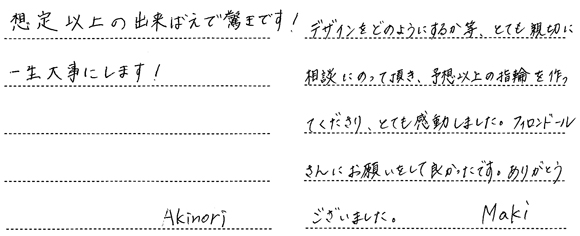 想定以上の出来ばえで驚きです!
一生大事にします!
Akinori
デザインをどのようにするか等、とても親切に
相談にのって頂き、予想以上の指輪を作っ
てくださり、とても感動しました。フィロンドール
さんにお願いをして良かったです。ありがとう
ございました。 Maki